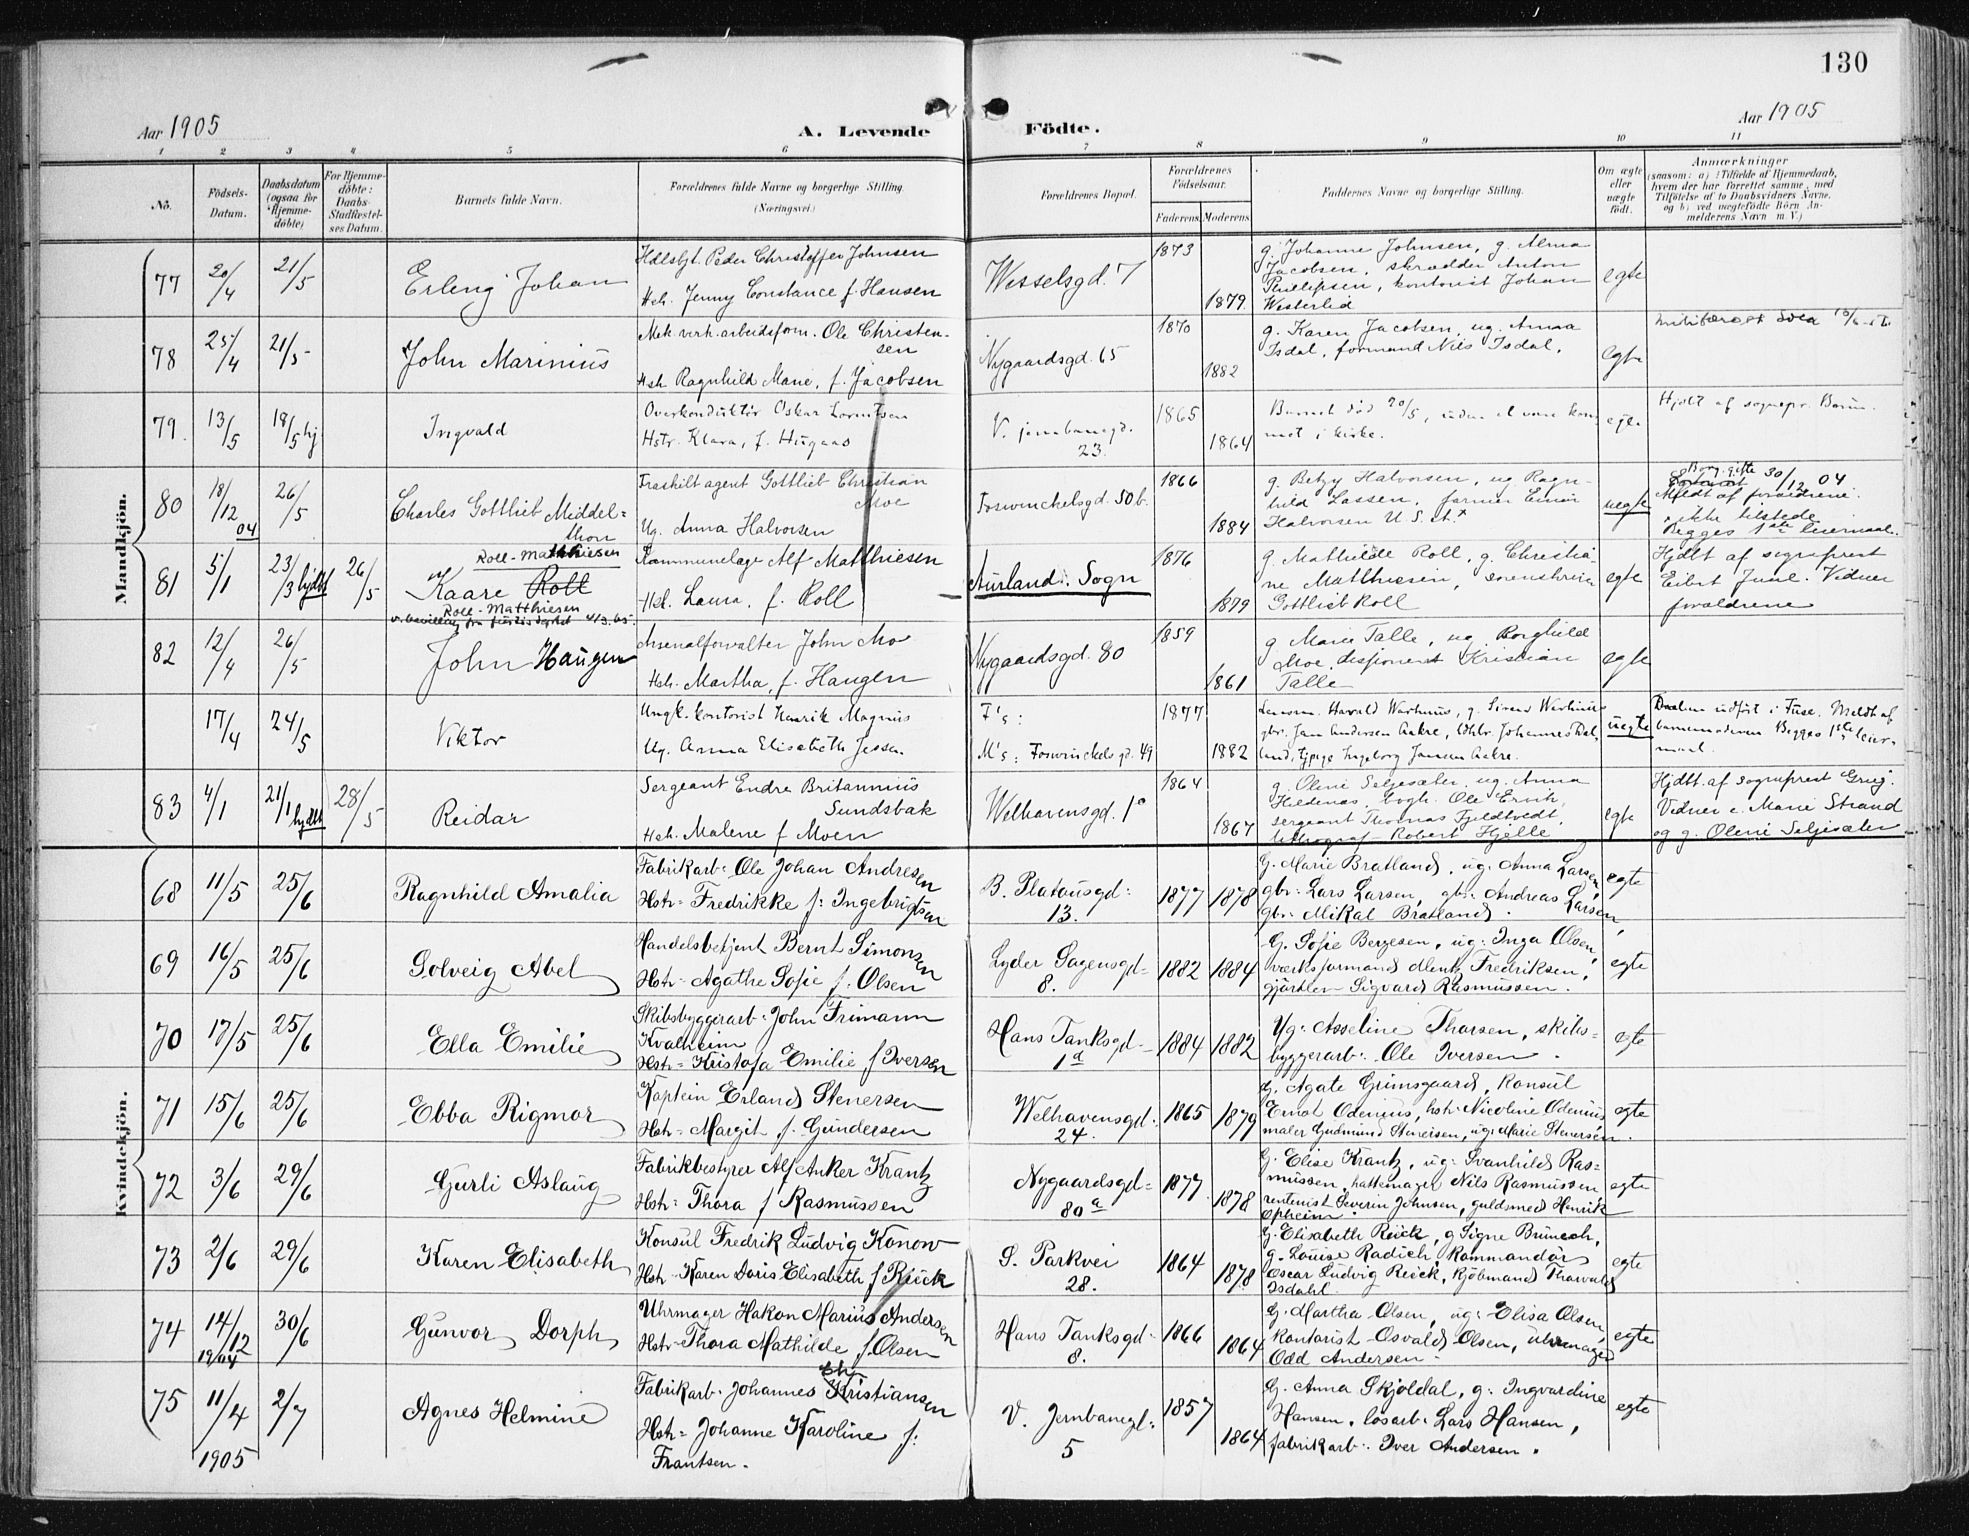 130
Aar 1905
A. Levende
Födte.
Aar 1905
1 2 3 4 5 6 7 8 9 10 11
No.
Födsels-
Datum.
Daabsdatum
(ogsaa for
Hjemme-
döbte)
For Hjemme-
döbte:
Daabs-
Stadfæstel-
ses Datum.
Barnets fulde Navn.
Forældrenes fulde Navne og borgerlige Stilling.
(Næringsvei.)
Forældrenes Bopæl.
Forældrenes
Födselsaar.
Faderens
Moderens
Faddernes Navne og borgerlige Stilling.
Om ægte
eller
uægte
födt.
Anmærkninger
(saasom: a) i Tilfælde af Hjemmedaab,
hvem der har forrettet samme, med
Tilföielse af to Daabsvidners Navne,
og b) ved uægtefödte Börn An-
melderens Navn m. V.)
Mandkjön.
77 20/4 21/5 Erling Johan
Hdlsbt. Peder Christoffer Johnsen
Hstr. Jenny Constance f. Hansen
Wesselsgd. 7
1873
1879
g. Johanne Johnsen, g. Alma
Jacobsen, skrædder Anton
Phillipsen, kontorist Johan
Westerlid
egte
78 25/4 21/5 John Marinius
Mek. verk. arbeidsform. Ole Christen-
sen
Hstr. Ragnhild Marie, f. Jacobsen
Nygaardsgd. 65
1870
1882
g. Karen Jacobsen, ug. Anna
Isdal, formand Nils Isdal.
egte
79. 13/5 18/5 hj. Ingvald
Overkonduktör Oskar Lorentsen
Hstr. Klara, f. Haugaas
V. jernbanegd.
23.
1865
1864
Barnet död 20/5, uden at være kom-
met i kirke.
egte
Hjdbt af sognepr. Barun.
80 18/12 04 26/5 Charles Gottlieb Middel=
thon
agent Gottlieb Christian
Moe
Ug. Anna Halvorsen
Foswinckelsgd. 50 b.
1866
1884
g. Betzy Halvorsen, ug. Ragn-
hild Lassen, farmer Einar
Halvorsen U. S. A.
uegte
Borg. gifte 30/12 04
Meldt af forældrene.
ikke tilstede
Begges 1ste leiermaal.
81 5/1 23/3 hjdbt 26/5
Roll-Matthiesen
Kaare Roll
Roll-Matthiesen
v. bevilling fra justisdeptet 4/3.05.
Kommunelæge Alf Matthiesen
Hstr. Laura, f. Roll
Aurland i Sogn
1876
1879
g. Mathilde Roll, g. Christia-
ne Matthiesen, sorenskriv.
Gottlieb Roll
egte
Hjdbt af sogneprest
Eibet Juul. Vidner
forældrene
82 12/4 26/5 John Haugen
Arsenalforvalter John Mo
Hstr. Martha, f. Haugen
Nygaardsgd. 80
1859
1861
g. Marie Talle, ug. Borghild
Moe, disponent Kristian
Talle
egte
17/4 24/5 Viktor
Ungk. kontorist Henrik Magnus
Ug. Anna Elisabeth Jessen
F's:
M's: Foswinckels gd. 49
1877
1882
Lensm. Harald Warhuus, g. Sirene Warhuus
gbr. Jan Andersen Aakre, Johannes Dal-
lund, tjpige Ingeborg Jansen Aakre.
uegte
Daaben udfört i Fuse. Meldt af
barnemoderen Begges 1ste leier-
maal.
83 4/1 21/1 hjdbt 28/5 Reidar
Sergeant Endre Britannius
Sundsbak
Hstr. Malene f Moen
Welhavensgd. 1a
1864
1867
g. Oleni Seljesæter, ug. Anna
Hildenæs, bogh. Ole Ervik,
sergeant Thomas Fjeldtvedt,
lithograf Robert Hjelle
egte
Hjdbt. af sogneprest Grieg.
Vidner e. Marie Strand
og g. Oleni Seljesæter
Kvindekjön.
68 11/5 25/6 Ragnhild Amalia
Fabrikarb. Ole Johan Andresen
Hstr= Fredrikke f: Ingebrigtsen
B. Platousgd:
13.
1877 1878
G. Marie Bratland, ug: Anna Larsen,
gbr: Lars Larsen, gbr: Andreas Larsen,
gbr: Mikal Bratland.
egte
69 16/5 25/6 Solveig Abel
Handelsbetjent Bernt Simonsen
Hstr= Agathe Sofie f: Olsen
Lyder Sagensgd=
8.
1882 1884
G. Sofie Bergesen, ug: Inga Olsen,
værksformand Mentz Fredriksen,
gjörtler Sigvard Rasmussen.
egte
70 17/5 25/6 Ella Emilie
Skibsbyggerarb: John Frimann
Kvalheim
Hstr= Kristofa Emilie f Iversen
Hans Tanksgd.
1d
1884 1882
Ug: Asseline Thorsen, skibs=
byggerarb: Ole Iversen.
egte
71 15/6 25/6 Ebba Rigmor
Kaptein Erland Stenersen
Hstr= Margit f. Gundersen
Welhavensgd.
24.
1865 1879
G. Agate Grimsgaard, Konsul
Ernst Odenius, hstr. Nicoline Odenius
maler Gudmund Stenersen, ug: Marie Stenersen.
egte
72 3/6 29/6 Gurli Aslaug
Fabrikbestyrer Alf Anker Krantz
Hstr= Thora f Rasmussen
Nygaardsgd=
80 a
1877 1878
G. Elise Krantz, ug: Svanhild Ras=
mussen, hattemager Nils Rasmussen
rentenist Severin Johnsen, guldsmed Henrik
Opheim
egte
73 2/6 29/6 Karen Elisabeth
Konsul Fredrik Ludvig Konow
Hstr= Karen Doris Elisabeth f Rieck
S. Parkvei
28.
1864 1878
G. Elisabeth Rieck, g Signe Brunech,
g. Louise Radich, Kommandör
Oscar Ludvig Rieck, Kjöbmand Thorvald
Isdahl.
egte
74 14/12 1904 30/6 Gunvor Dorph
Uhrmager Hakon Marius Andersen
Hstr= Thora Mathilde f. Olsen
Hans Tanksgd=
8.
1866 1864
G. Martha Olsen, ug: Elisa Olsen,
kontorist Osvald Olsen, uhrmager
Odd Andersen.
egte
75 11/4 1905 2/7 Agnes Helmine
Fabrikarb. Johannes Kristiansen
Chr
Hstr= Johanne Karoline f:
Frantsen.
V. Jernbanegt:
5
1857 1864
G. Anna Skjoldal, g: Ingvardine
Hansen, lösarb. Lars Hansen,
fabrikarb. Iver Andersen.
egte